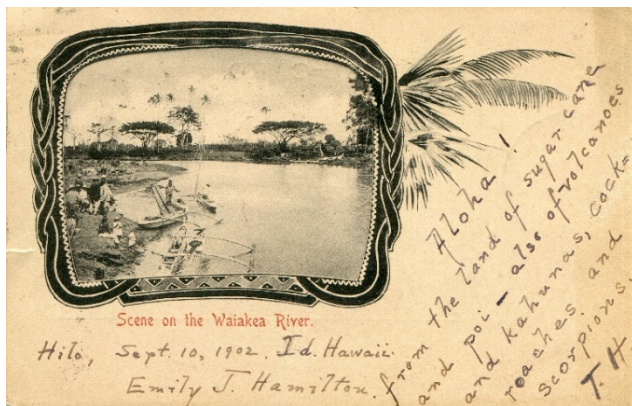 Scene on the Waiakea River.
Hilo, Sept. 10, 1902, Id. Hawaii.
Emily J. Hamilton.
Aloha!
from the land of sugar cane
and poi - also of volcanoes
and kahunas, cock=
roaches and
scorpions.
T. H.